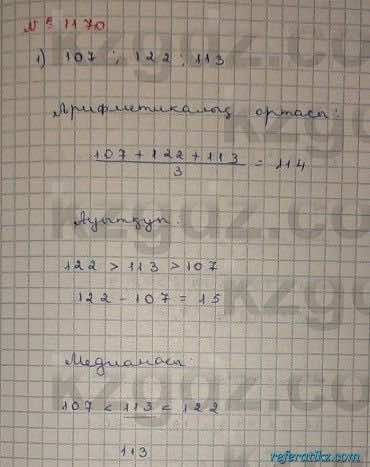 № 1170
1) 107 ; 122 ; 113
Арифметикалық ортасы:
107 + 122 + 113
3
= 114
Ауытқуы:
122 > 113 > 107
122 - 107 = 15
Медианасы:
107 < 113 < 122
113
kzgdz.com
referatikz.com